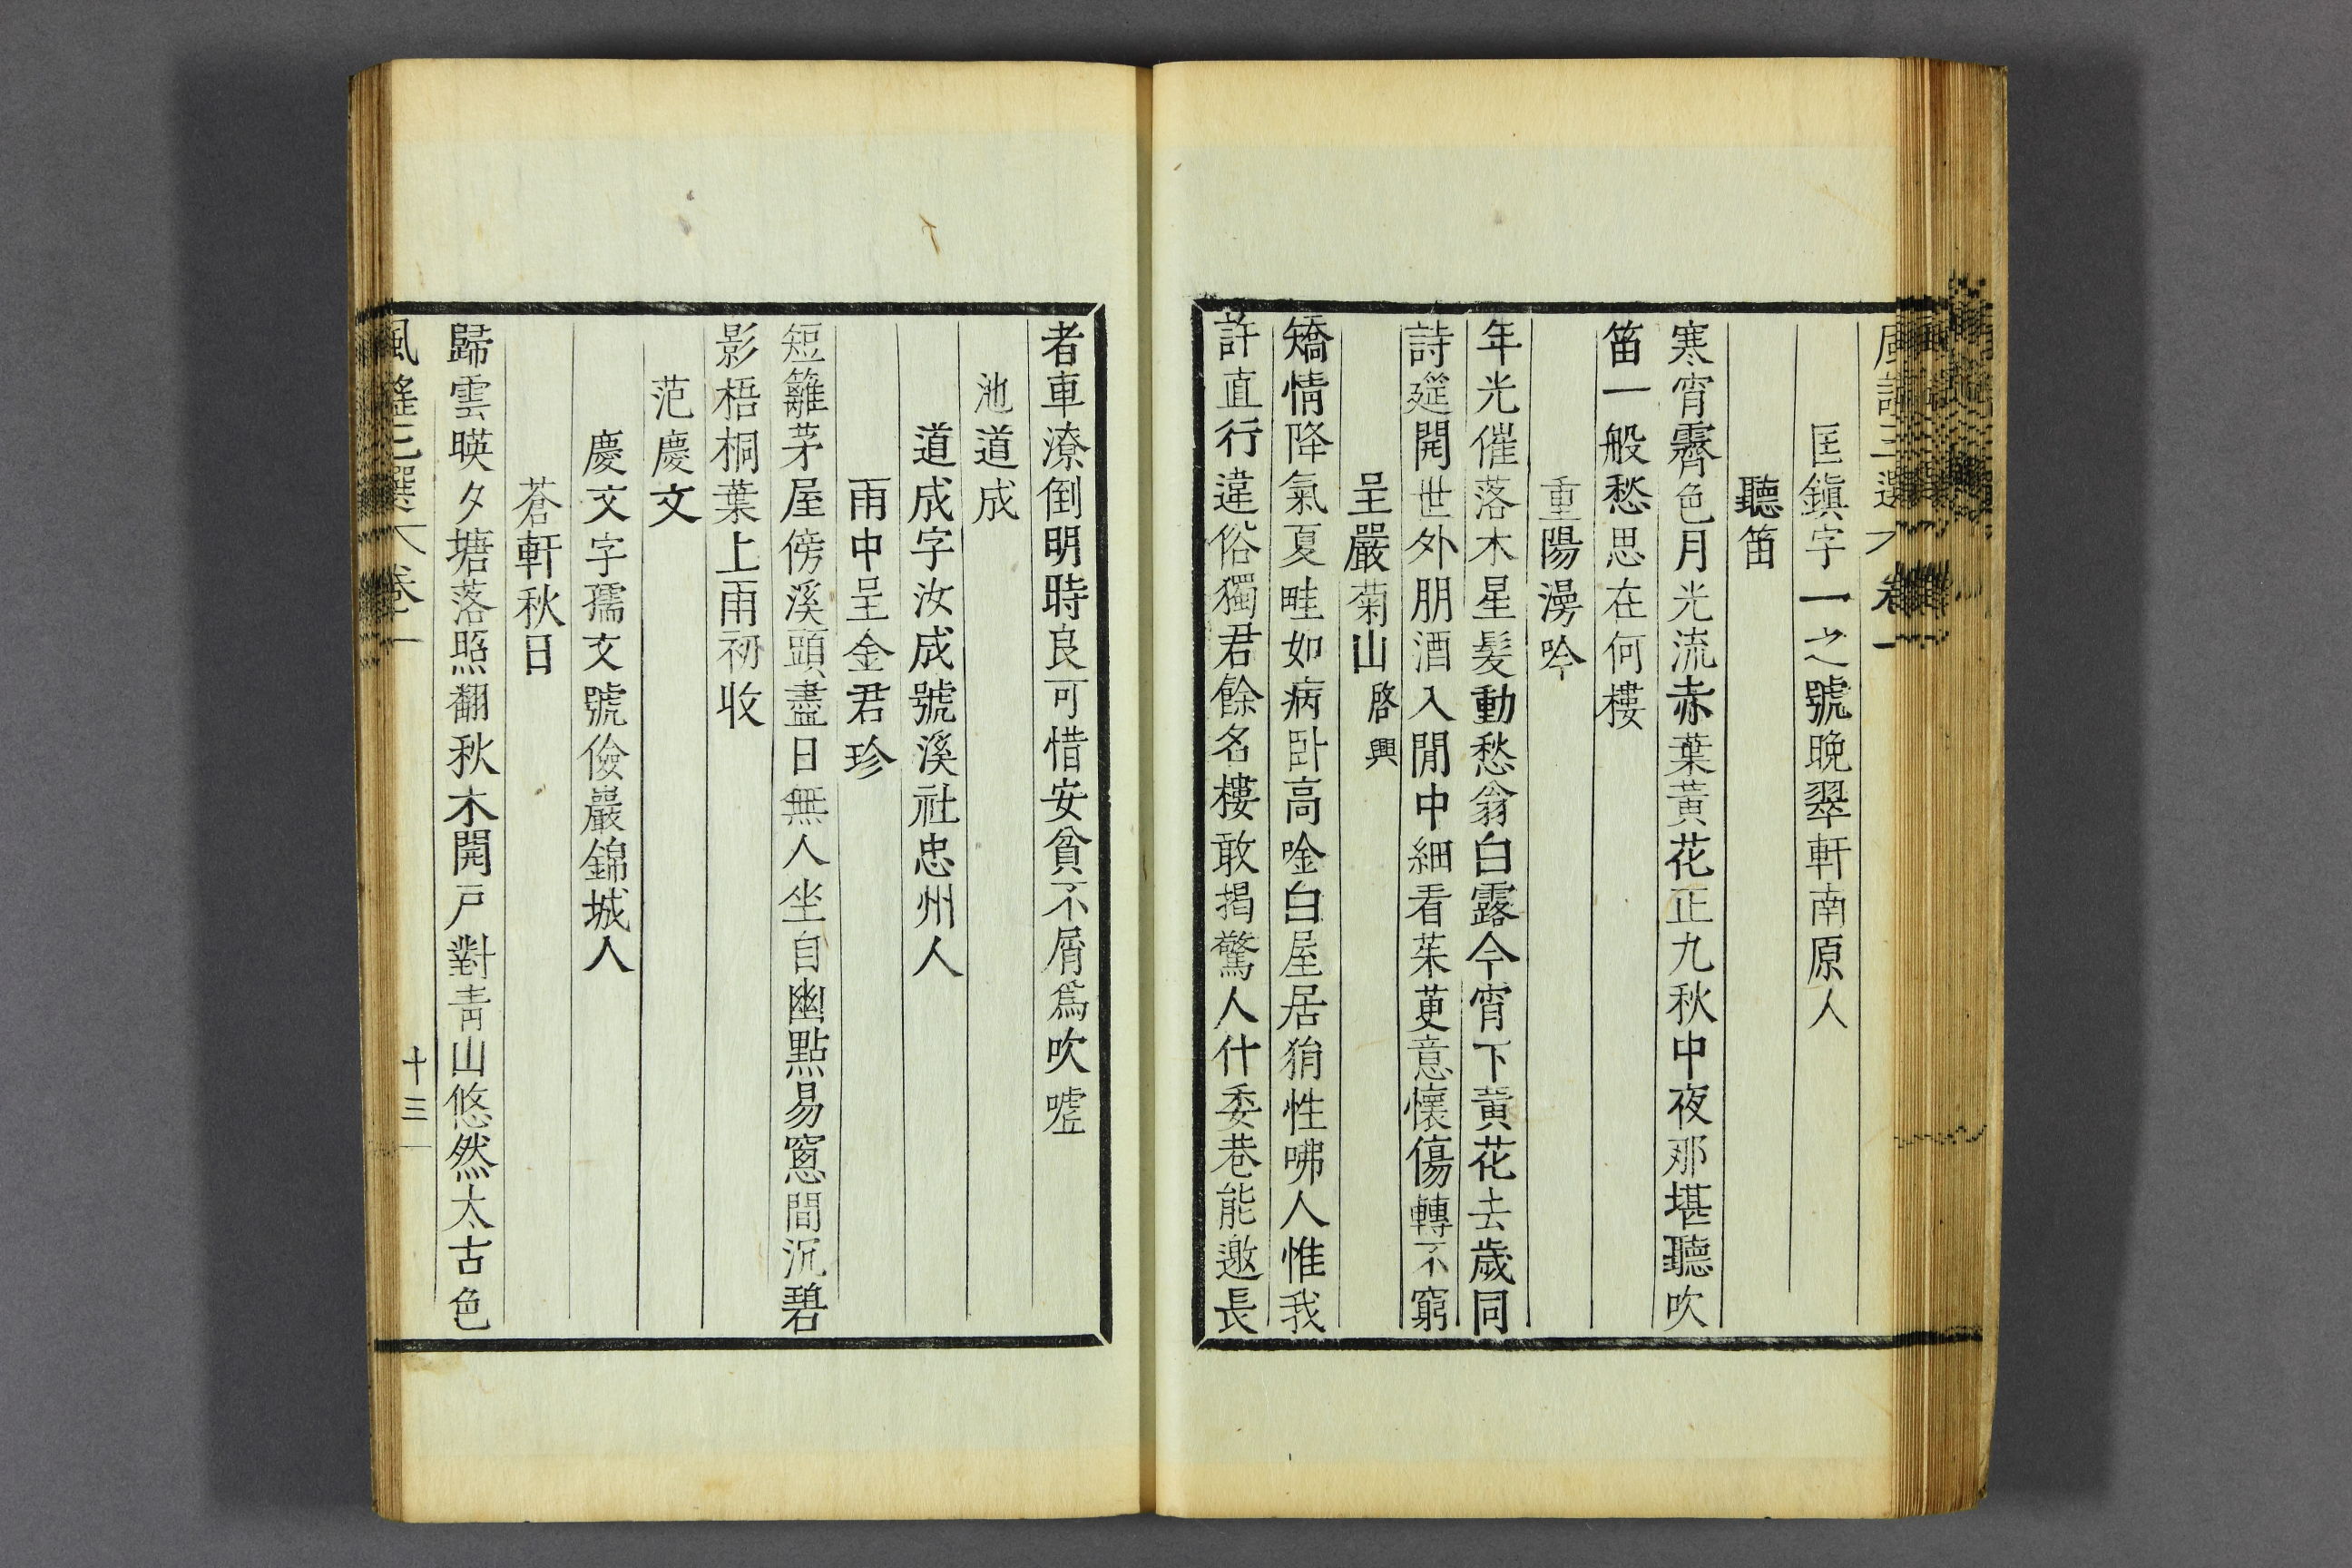 風謠三選 卷一
匡鎮字一之號晚翠軒南原人
聽笛
寒宵霽色月光流赤葉黃花正九秋中夜那堪聽吹
笛一般愁思在何樓
重陽漫吟
年光催落木星髮動愁翁白露今宵下黃花去歲同
詩筵開世外朋酒入閒中細看茱萸意懷傷轉不窮
呈嚴菊山啓興
矯情降氣夏畦如病卧高唫白屋居狷性咈人惟我
許直行違俗獨君餘名樓敢揭驚人什委巷能邀長
者車潦倒明時良可惜安貧不屑爲吹噓
池道成
道成字汝成號溪社忠州人
雨中呈金君珍
短籬茅屋傍溪頭盡日無人坐自幽點易窻間沉碧
影梧桐葉上雨初收
范慶文
慶文字孺文號儉巖錦城人
蒼軒秋日
歸雲暎夕塘落照翻秋木開戶對靑山悠然太古色
風謠三選 卷一 十三